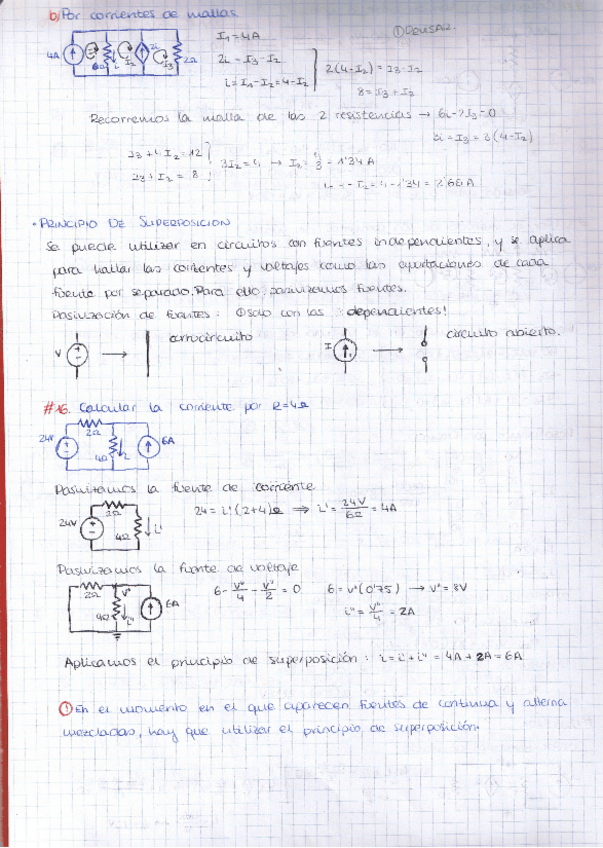 b) Por corrientes de mallas
4A
i
I2
2i
I3
2Ω
I1 = 4A
2i = I3 - I2
i = I1 - I2 = 4 - I2
2(4 - I2) = I3 - I2
8 = I3 + I2
Recorremos la malla de las 2 resistencias →
= I3 = 3(4 - I2)
I3 + I2 = 8
→ I2 =
1'34 A
• PRINCIPIO DE SUPERPOSICION
Se puede utilizar en circuitos con fuentes independientes, y se aplica
para hallar las corrientes y voltajes como las aportaciones de cada
fuente por separado. Para ello, pasivizamos fuentes.
Pasivización de fuentes: ¡solo con las dependientes!
V → cortocircuito
I → circuito abierto.
#16. Calcular la corriente por R=4Ω
24V 2Ω 4Ω i 6A
Pasivizamos la fuente de corriente
24V 2Ω 4Ω i'
24 = i'(2+4)Ω ⇒ i' = 24V/6Ω = 4A
Pasivizamos la fuente de voltaje
2Ω V" i" 6A
6 - V"/4 - V"/2 = 0 6 = V"(0'75) → V" = 8V
i" = V"/4 = 2A
Aplicamos el principio de superposición: i = i' + i" = 4A + 2A = 6A
! En el momento en el que aparecen fuentes de continua y alterna
mezcladas, hay que utilizar el principio de superposición.